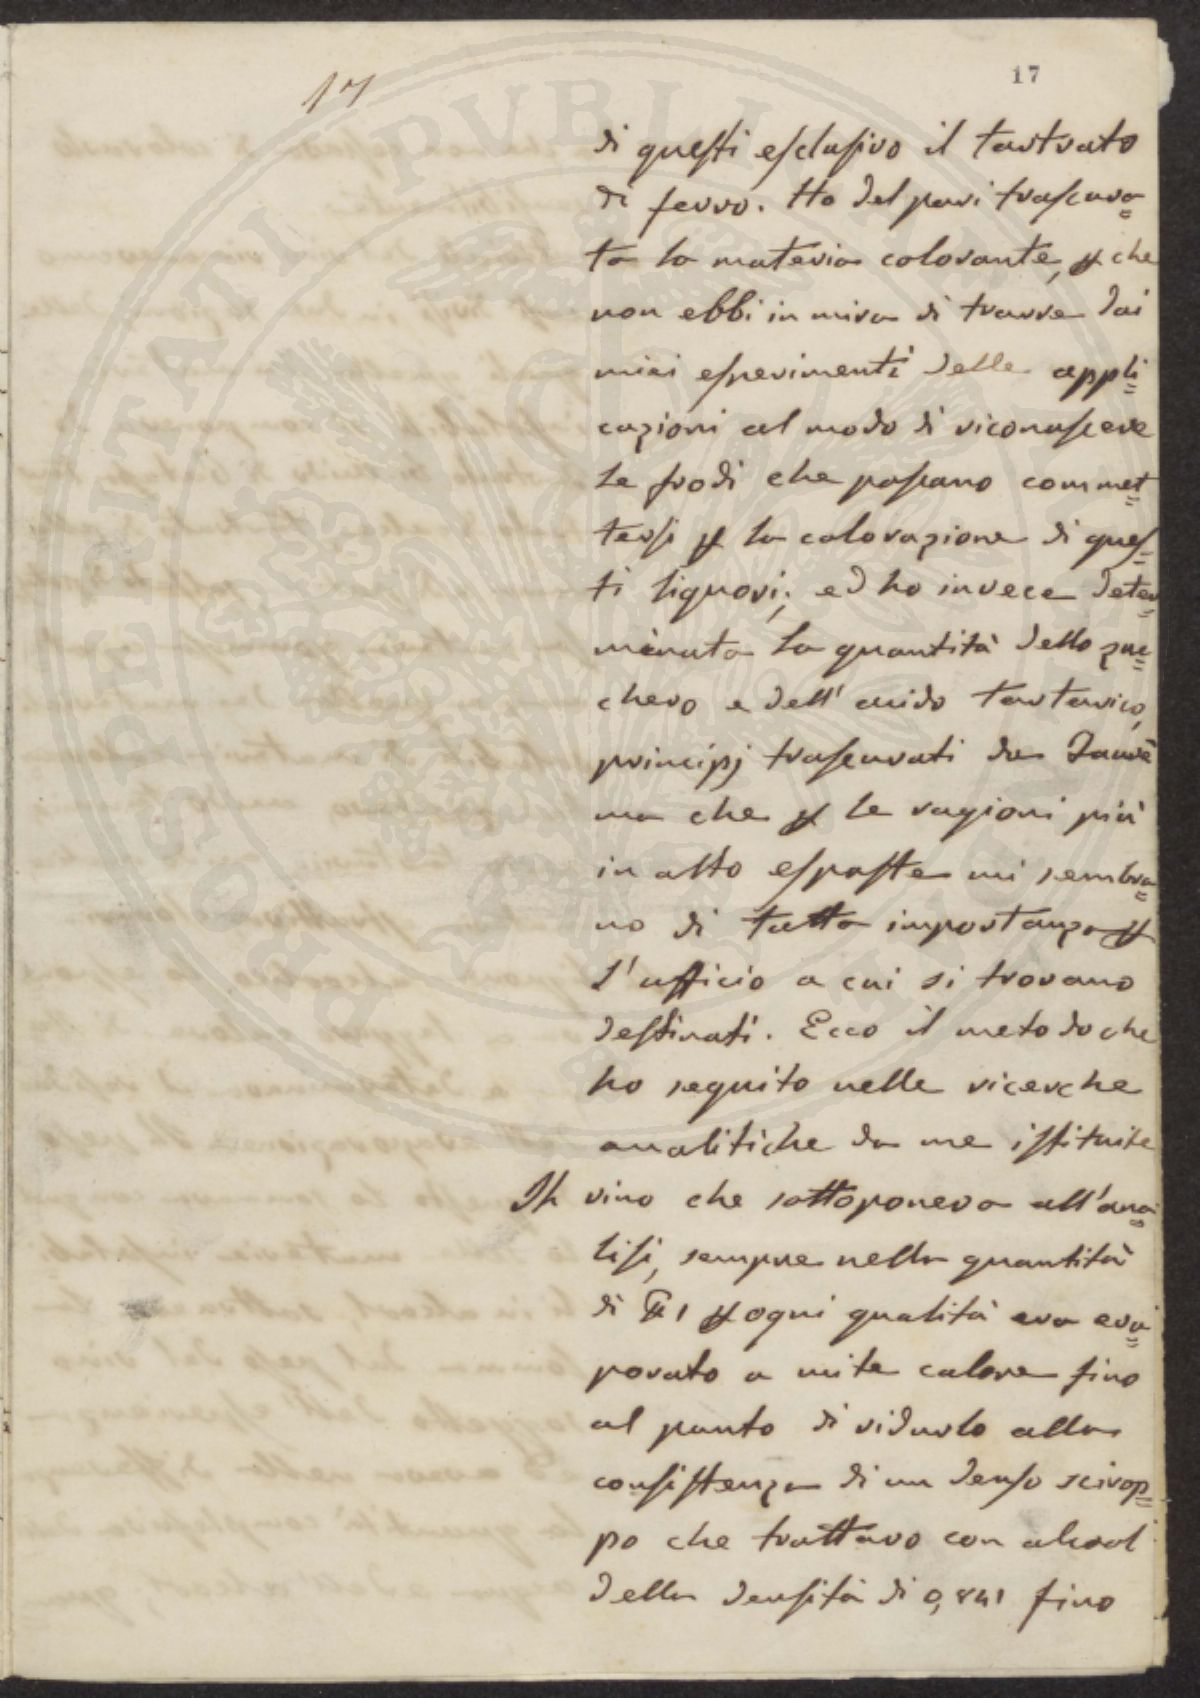 17
17
di questi esclusivo il tartrato
di ferro. Ho del pari trascura=
ta la materia colorante, p che
non ebbi in mira di trarre dai
miei esperimenti delle appli=
cazioni al modo di riconoscere
le frodi che possano commet=
tersi p la colorazione di ques=
ti liquori; ed ho invece deter=
minata la quantità dello zuc=
chero e dell' acido tartarico,
principj trascurati da Fauré
ma che p le ragioni più
in alto esposte mi sembra=
no di tutta importanza p
l'ufficio a cui si trovano
destinati. Ecco il metodo che
ho seguito nelle ricerche
analitiche da me istituite
Il vino che sottoponeva all'ana=
lisi, sempre nella quantità
di ℔ 1 p ogni qualità era eva=
porato a mite calore fino
al punto di ridurlo alla
consistenza di un denso scirop=
po che trattavo con alcool
della densità di 0,841 fino